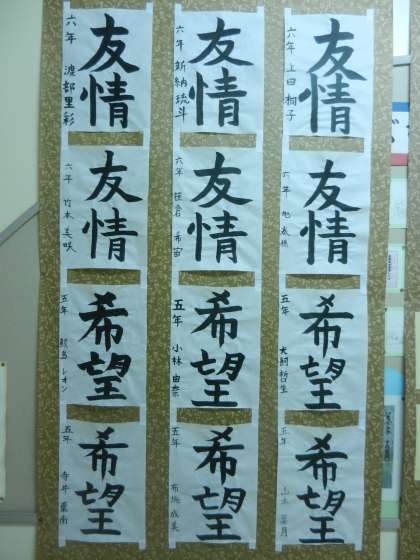 友情
六年 上田 桐子
友情
六年
希望
五年 犬飼 哲生
希望
五年 山本 葉月
友情
六年 新納 琉斗
友情
六年 笹倉 希宙
希望
五年 小林 由奈
希望
五年 布施 成美
友情
六年 渡部 里彩
友情
六年 竹本 美咲
希望
五年 レオン
希望
五年 寺井